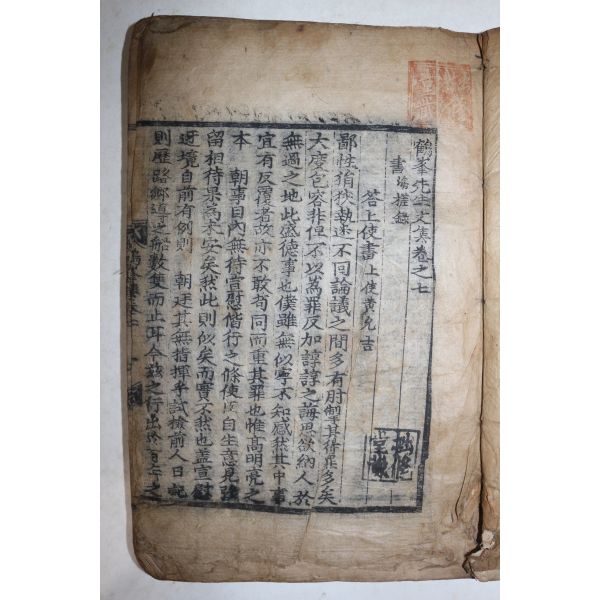 鶴峯先生文集卷之七
書 海槎錄
答上使書 上使黃允吉
鄙性狷狹執迷不回論議之間多有肘掣其待罪多矣
大度包容非但不以爲罪反加諄諄之誨思欲納人於
無過之地此盛德事也僕雖無似寧不知感然其中事
宜有反覆者故亦不敢苟同而重其罪也惟高明亮之
本 朝事目內無待宣慰偕行之條使 自生意見強
留相待果爲未安矣然此則似矣而實不然也盖宣慰
迎境自前有例則 朝廷其無指揮乎試檢前人日記
則歷路鄉導之船數隻而止耳今玆之行出於 之